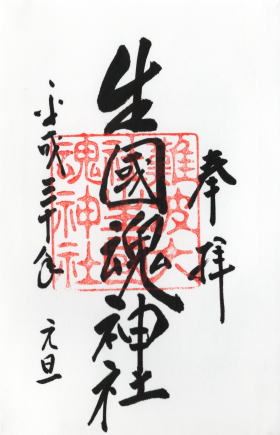 奉拝
生國魂神社
平成三十年 元旦
難波大
魂神社